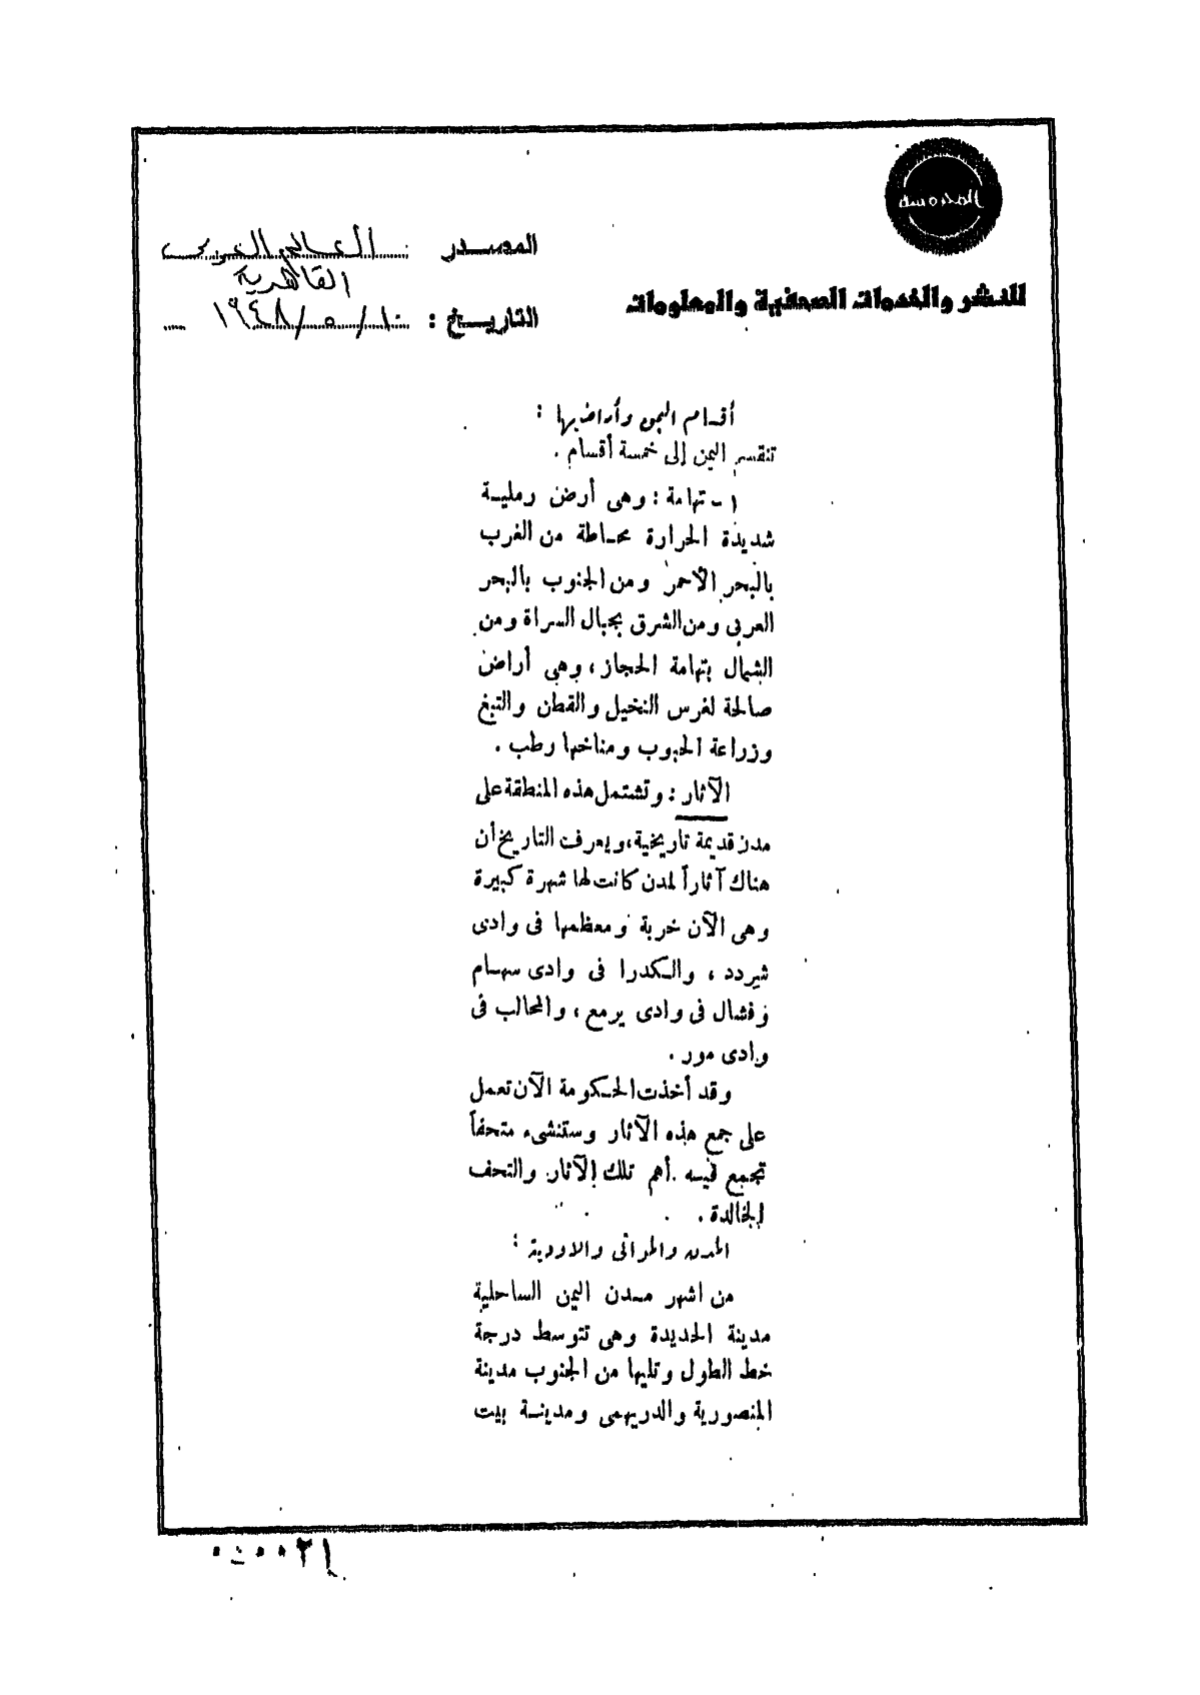 المحروسة
للنشر والخدمات الصحفية والمعلومات
المصدر : العالم العربي
القاهرية
التاريخ : ١٠/٥/١٩٤٨
أقسام اليمن وأراضيها :
تنقسم اليمن إلى خمسة أقسام .
١ - تهامة : وهى أرض رملية
شديدة الحرارة محاطة من الغرب
بالبحر الأحمر ومن الجنوب بالبحر
العربى ومن الشرق بجبال السراة ومن
الشمال بتهامة الحجاز ، وهى أراض
صالحة لغرس النخيل والقطن والتبغ
وزراعة الحبوب ومناخها رطب .
الآثار : وتشتمل هذه المنطقة على
مدن قديمة تاريخية ، ويعرف التاريخ أن
هناك آثاراً لمدن كانت لها شهرة كبيرة
وهى الآن خربة ومعظمها فى وادى
شيردد ، والكدرا فى وادى سهام
وفشال فى وادى يرمع ، والمحالب فى
وادى مور .
وقد أخذت الحكومة الآن تعمل
على جمع هذه الآثار وستنشىء متحفاً
تجمع فيه أهم تلك الآثار والتحف
الخالدة .
المدن والمرانى والاودية :
من اشهر مدن اليمن الساحلية
مدينة الحديدة وهى تتوسط درجة
خط الطول وتليها من الجنوب مدينة
المنصورية والدريهمى ومدينة بيت